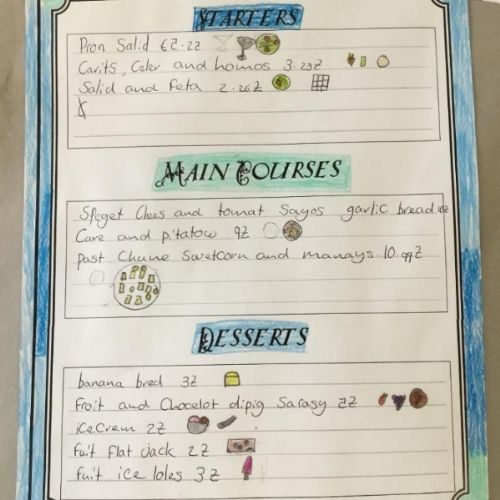 STARTERS
Pron Salid 6Z.2Z
Carits, Celer and homos 3.23Z
Salid and Feta 2.26Z
MAIN COURSES
Spaget Chees and tomat Sayos garlic bread 10Z
Care and pitatow 9Z
Past Chune Swetcorn and manays 10.99Z
DESSERTS
banana bred 3Z
Froit and Chocelot dipig Sarasy 2Z
ice Crem 2Z
Fuit Flat Jack 2Z
fuit ice loles 3Z